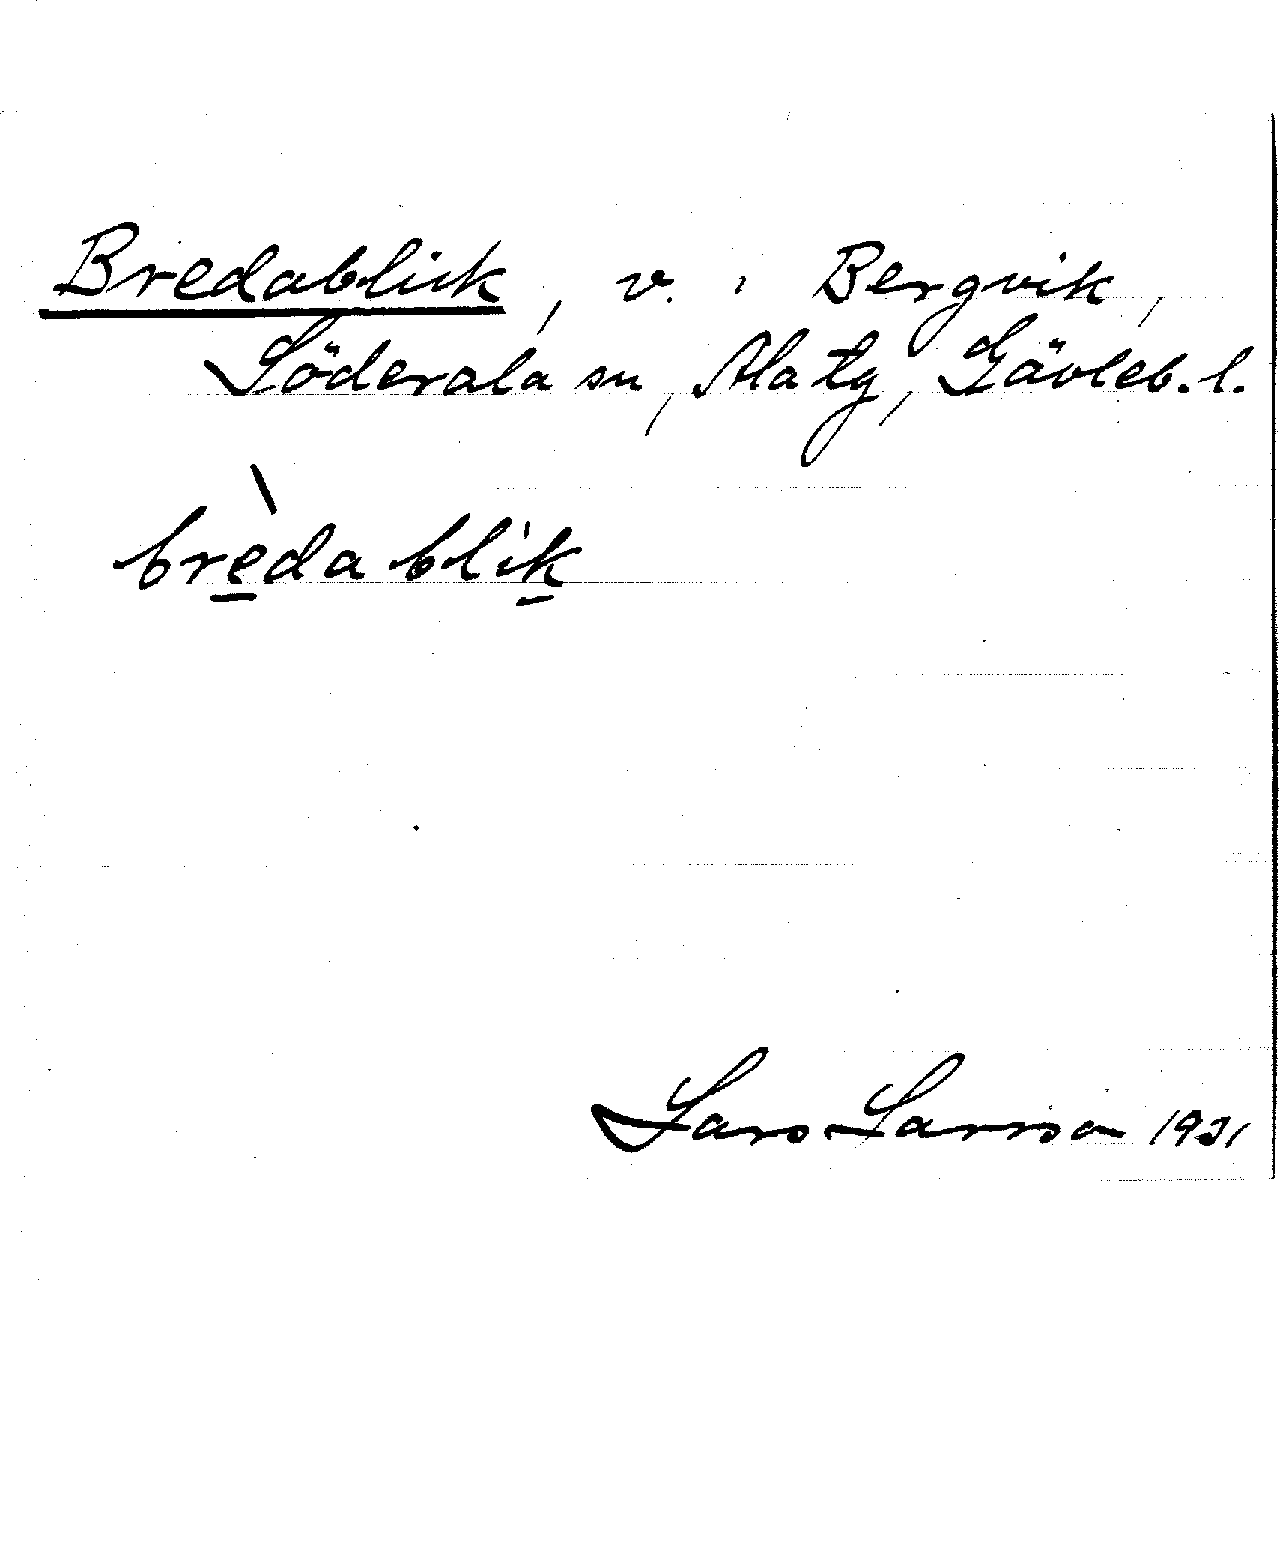 Bredablick, v. i Bergvik,
Söderala sn, Ala tg, Gävleb. l.
brèdablik
Lars Larsson 1931